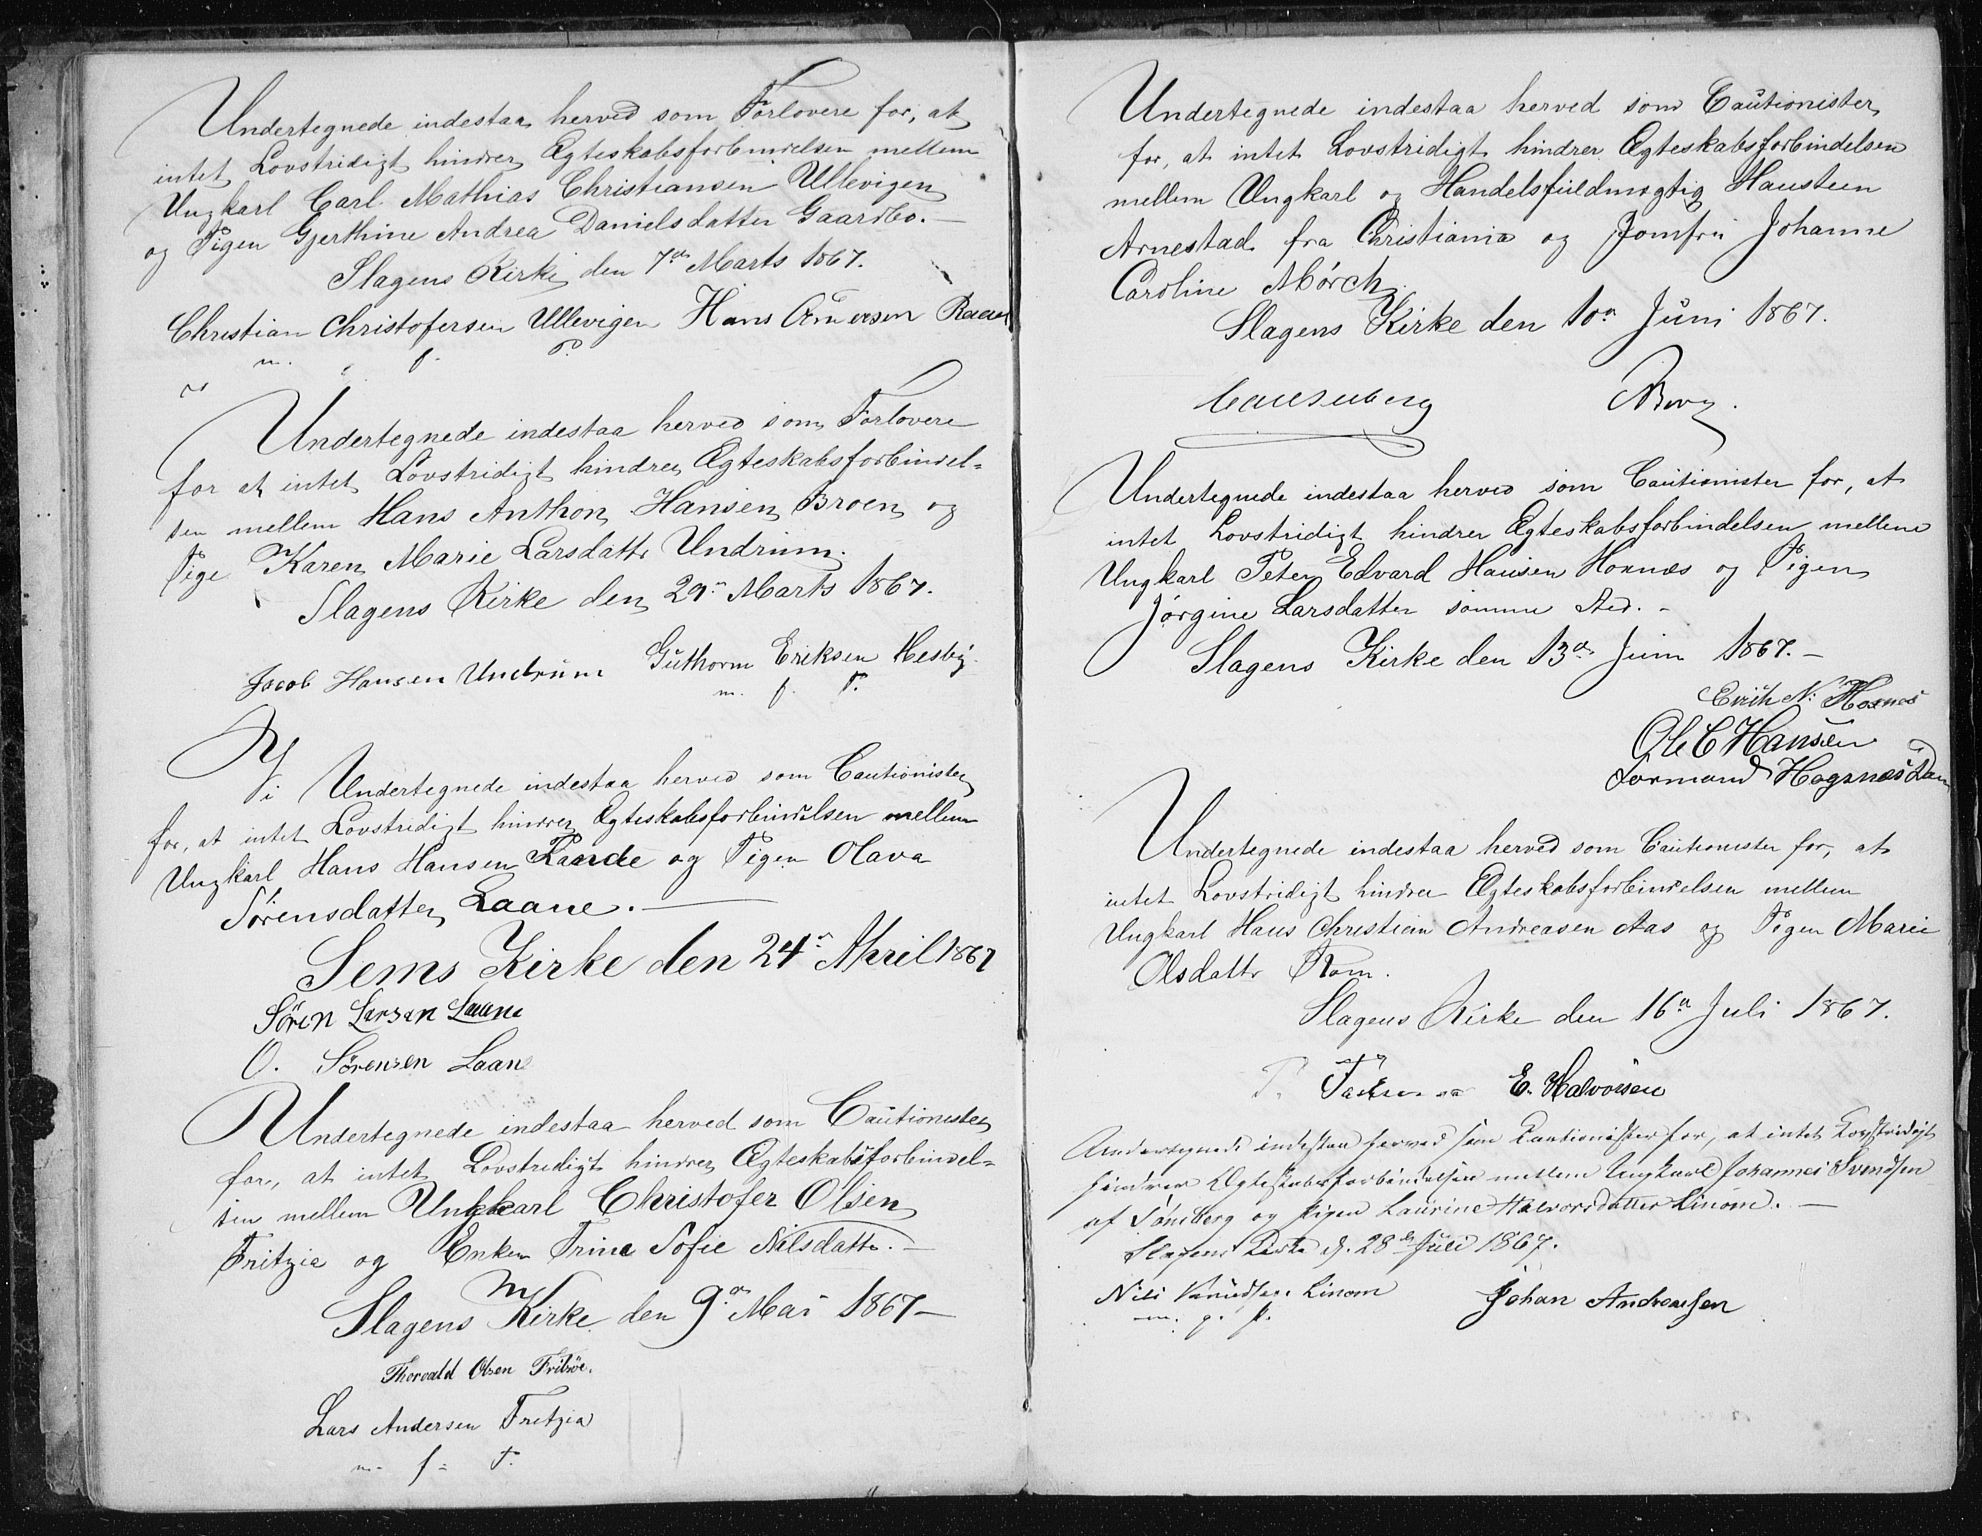 Undertegnede indestaa herved som Forlovere for, at
intet Lovstridigt hindrer Ægteskabsforbindelsen mellem
Ungkarl Carl Mathias Christiansen Ullevigen
og Pigen Gjerthine Andrea Danielsdatter Gaardbo.—
Slagens Kirke den 7de Marts 1867.
Christian Christofersen Ullevigen Hans Andersen
m. f. P.
Undertegnede indestaa herved som Forlovere
for at intet Lovstridigt hindrer Ægteskabsforbindel-
sen mellem Hans Anthon Hansen Broen og
Pige Karen Marie Larsdattr Undrum.
Slagens Kirke den 29n Marts 1867.
Jacob Hansen Undrum Guthorm Eriksen Hesby.
m. f. P.
Vi Undertegnede indestaa herved som Cautionister
for, at intet Lovstridigt hindrer Ægteskabsforbindelsen mellem
Ungkarl Hans Hansen Rande og Pigen Olava
Sørensdatter Laane.—
Sems Kirke den 24n April 1867
Sören Larsen Laane
O. Sørensen Laane
Undertegnede indestaa herved som Cautionister
for, at intet Lovstridigt hindrer Ægteskabsforbindel-
sen mellem Ungkarl Christofer Olsen
Fritzia og Enken Trine Sofie Nilsdattr.—
Slagens Kirke den 9de Mai 1867—
Thorvald Olsen
Lars Andersen Fritzia
m. f. P.
Undertegnede indestaa herved som Cautionister
for, at intet Lovstridigt hindrer Ægteskabsforbindelsen
mellem Ungkarl og Handelsfuldmægtig Hausteen
Arnestad fra Christiania og Jomfru Johanne
Caroline Mörch
Slagens Kirke den 10n Juni 1867.
Berg.
Undertegnede indestaa herved som Cautionister for, at
intet Lovstridigt hindrer Ægteskabsforbindelsen mellem
Ungkarl Peter Edvard Hansen Hoxnæs og Pigen
Jørgine Larsdatter samme Sted.-
Slagens Kirke den 13de Juni 1867.—
N. Hoxnes
Ole C Hansen
Formand
Undertegnede indestaa herved som Cautionister for, at
intet Lovstridigt hindrer Ægteskabsforbindelsen mellem
Ungkarl Hans Christian Andreasen Aas og Pigen Marie
Olsdattr Rom.
Slagens Kirke den 16n Juli 1867.
E. Halvorsen
Undertegnede indestaa herved som Kautionister for, at intet Lovstridigt
hindrer Ægteskabsforbindelsen mellem Ungkarl Johannes Svendsen
af Tønsberg og Pigen Laurine Halvorsdatter Linom.—
Slagens Kirke d. 28de Juli 1867.
Nils Knudsen Linom Johan Andreassen
m. p. P.